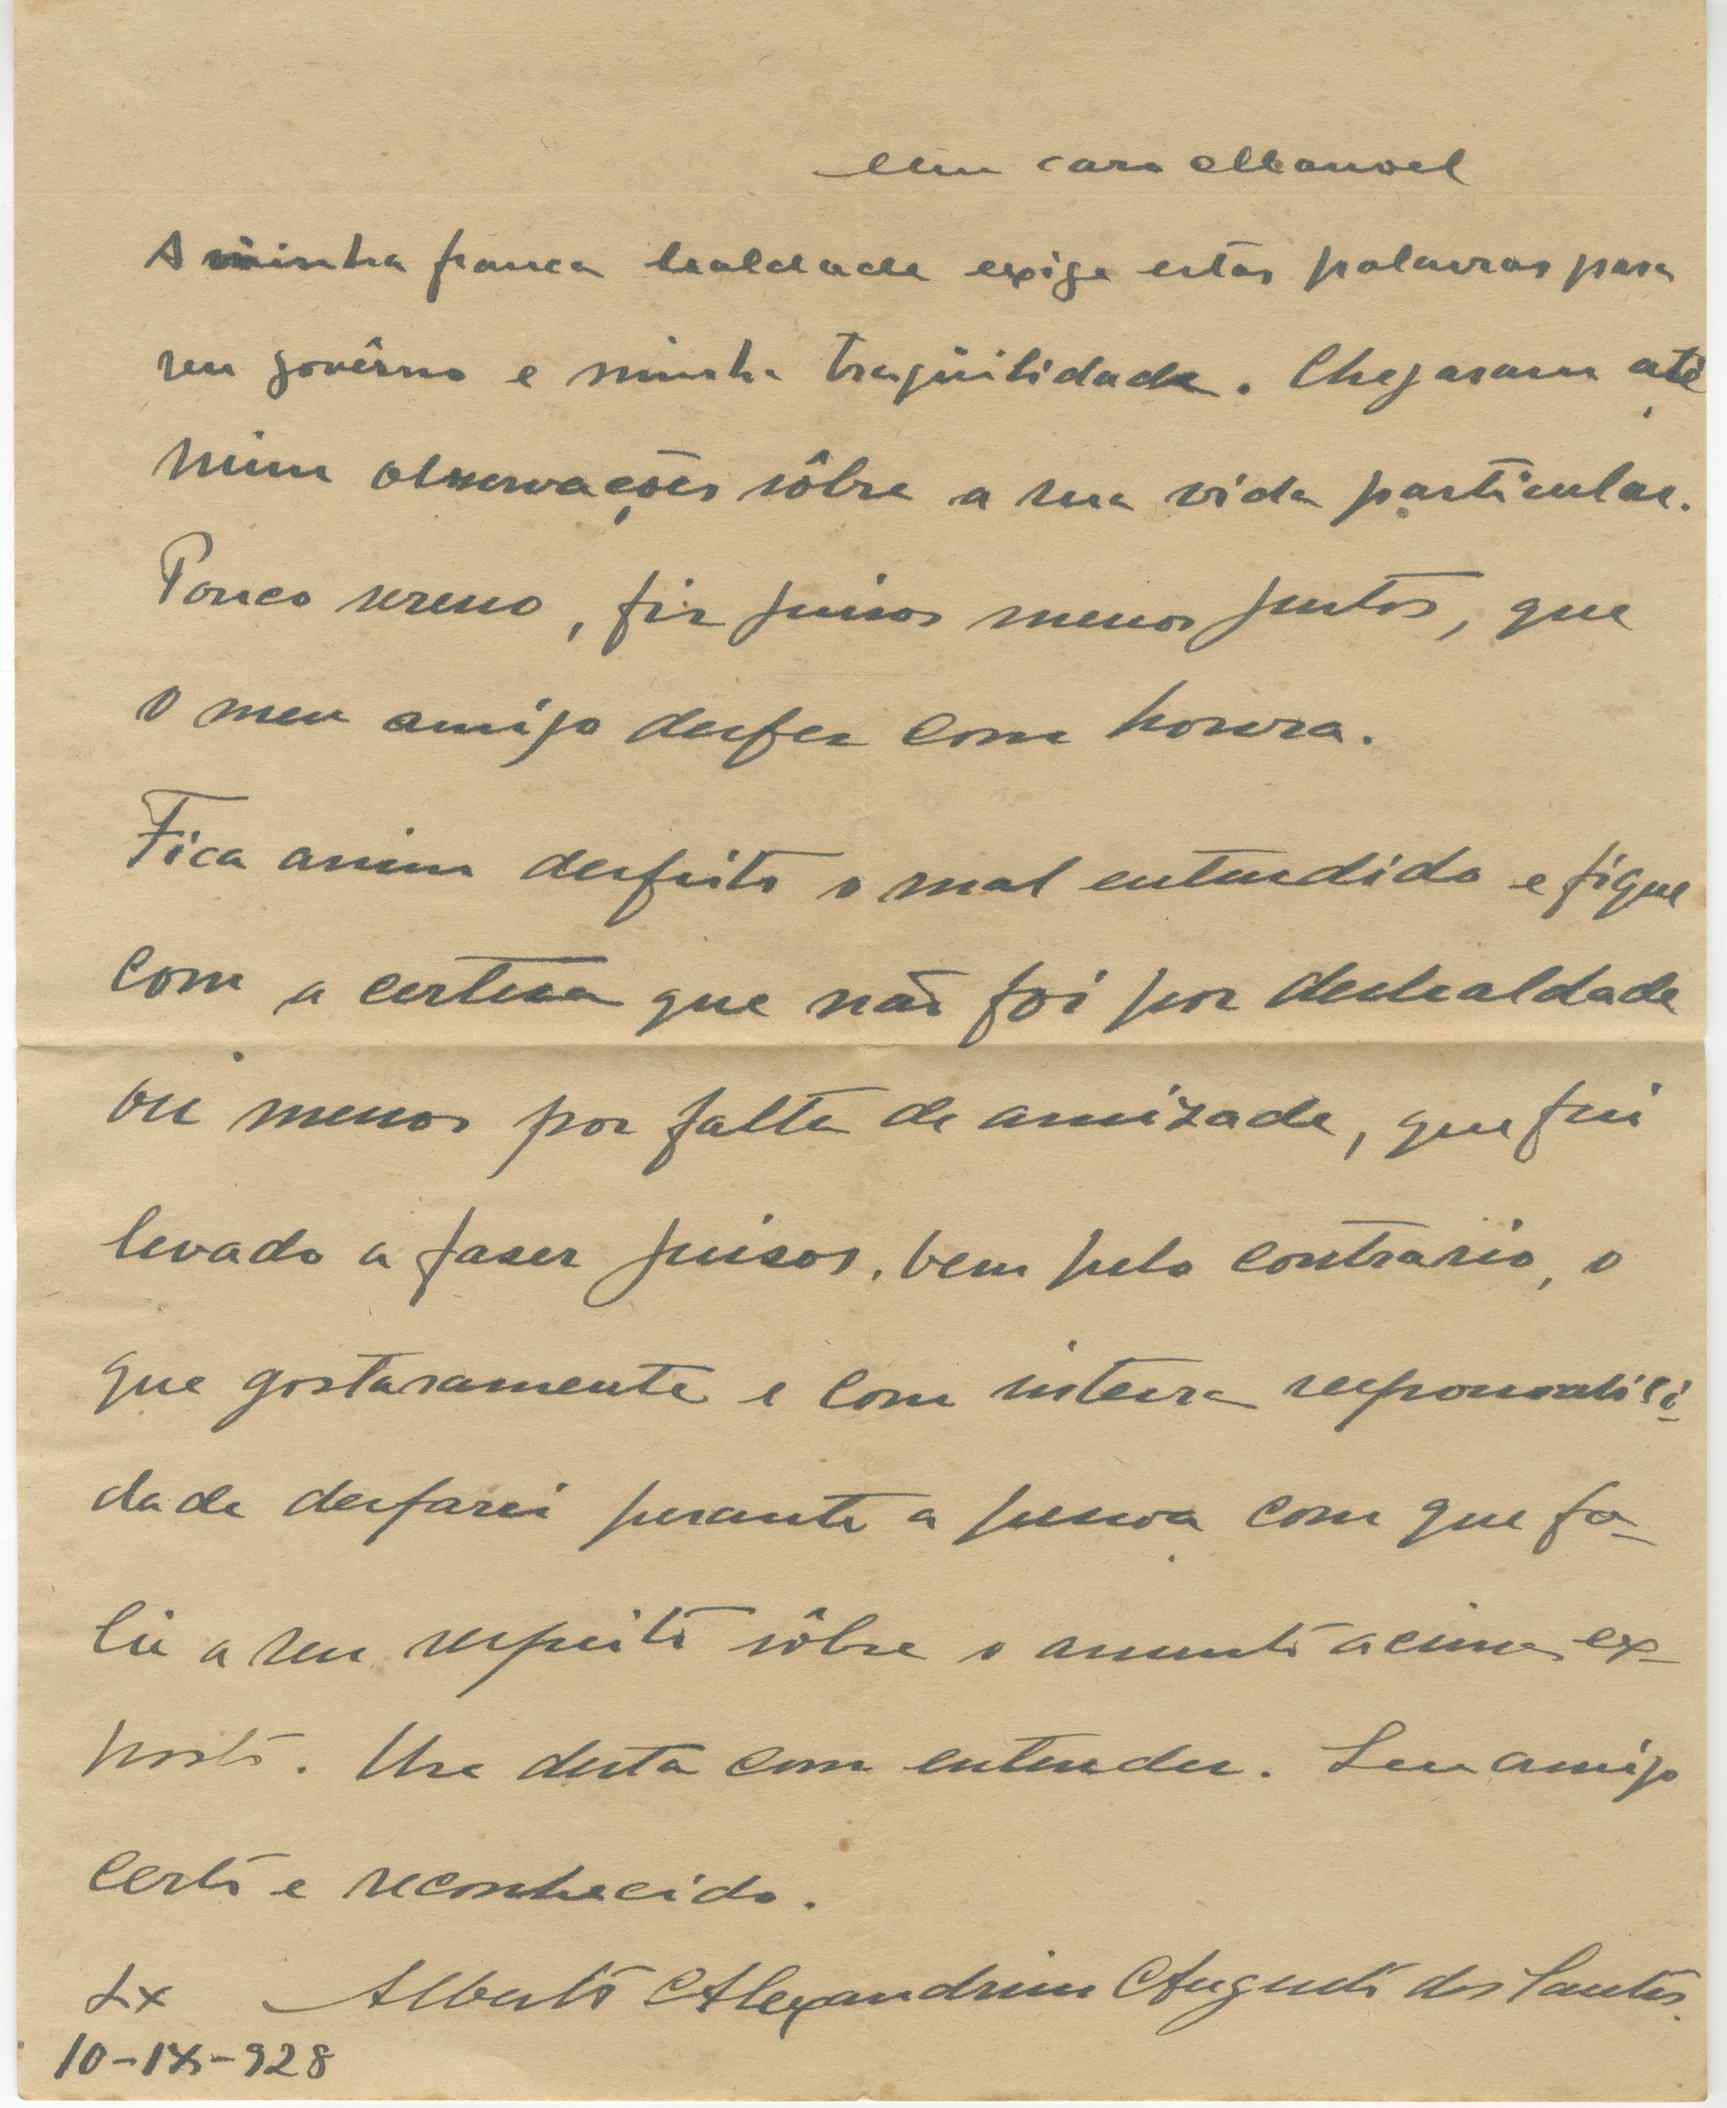 Meu caro Manoel
A minha franca lealdade exige estas palavras para
seu govêrno e minha traqüilidade. Chegaram até
mim observações sôbre a sua vida particular.
Pouco sereno, fiz juisos menos justos, que
o meu amigo desfez com honra.
Fica assim desfeito o mal entendido e fique
com a certesa que não foi por deslealdade
ou menos por falta de amizade, que fui
levado a faser juisos, bem pelo contrario, o
que gostosamente e com inteira responsabili
dade desfarei perante a pessoa com que fa-
lei a seu respeito sôbre o assunto acima ex-
posto. Use desta com entender. Seu amigo
certo e reconhecido.
Lx Alberto Alexandrino Augusto dos Santos.
10-IX-928